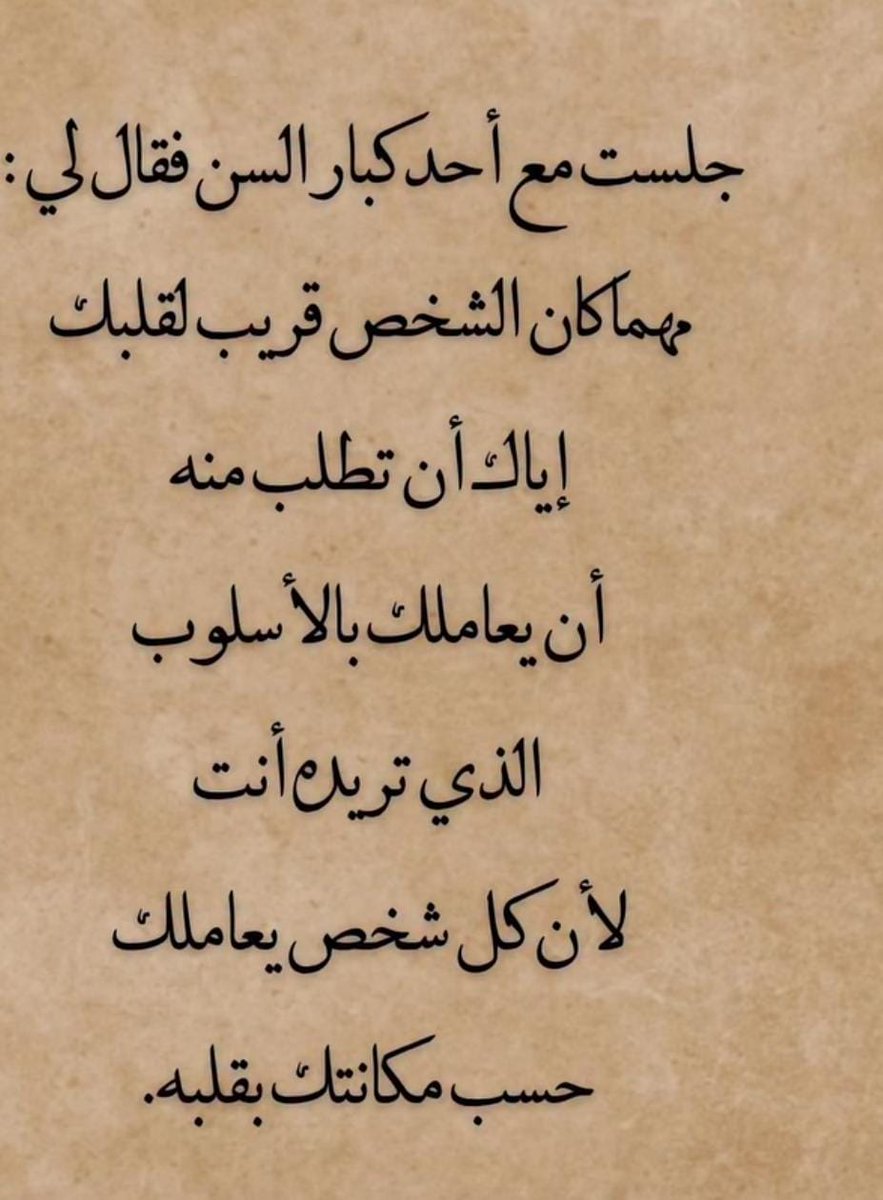 جلست مع أحد كبار السن فقال لي :
مهما كان الشخص قريب لقلبك
إياك أن تطلب منه
أن يعاملك بالأسلوب
الذي تريده أنت
لأن كل شخص يعاملك
حسب مكانتك بقلبه.